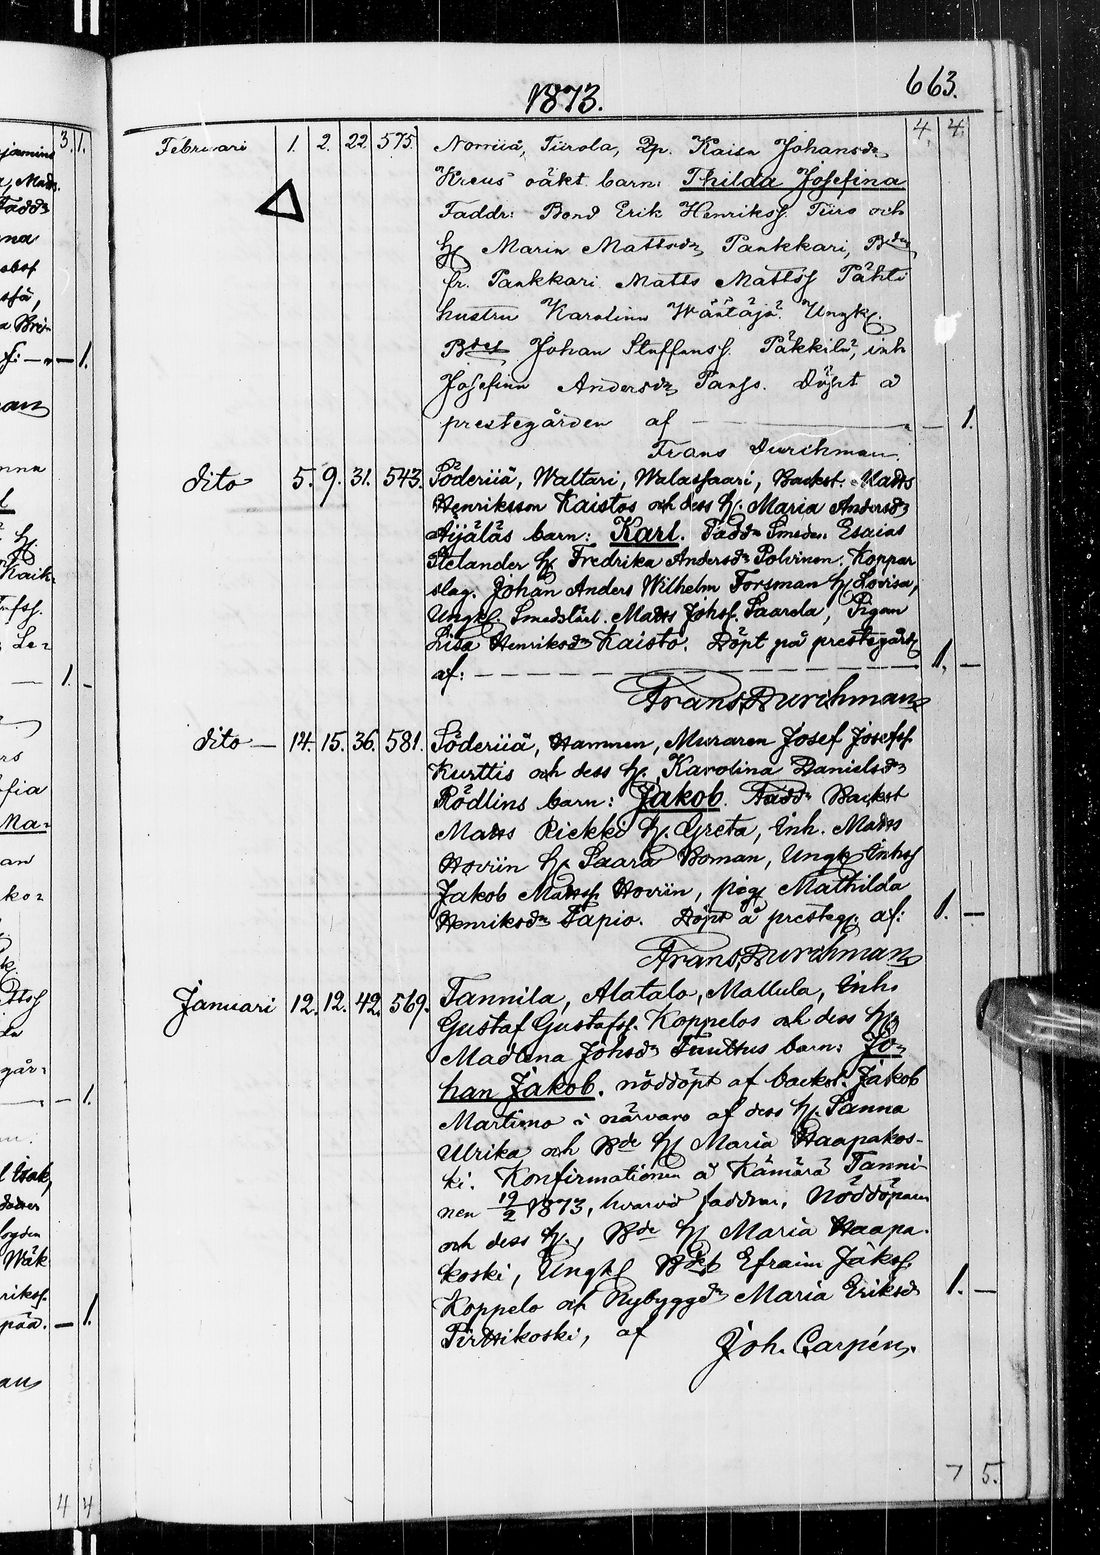 1873.
663.
4. 4.
Februari 1. 2. 22 575. Norriiä, Tiirola, Pp. Kaisa Johansdr
Kreus oäkt barn: Thilda Josefina
Faddr: Bond Erik Henrikss. Tiiro och
H. Maria Mattsdr Pankkari, Bde
fr. Pankkari Matts Mattss Pähti
hustru Karolina Wäätäjä. Ungk.
Bdes Johan Staffanss. Päkkilä, inh
Josefina Andersdr Panso. Döpt å
prestegården af — 1.
Frans Durchman.
dito 5. 9. 31. 543. Söderiiä, Waltari, Walassaari, Backst. Matts
Henriksson Kaistos och dess H. Maria Andersdr
Aijäläs barn: Karl. Fadd: Smeden Esaias
Stelander H. Fredrika Andersdr Polvinen. Koppar
slag. Johan Anders Wilhelm Forsman H. Lovisa,
Ungk. Smedslärl. Matts Johss. Saarela, Pigan
Lisa Henriksdr Kaisto. Döpt på prestegård
af: — 1. —
Frans Durchman
dito — 14. 15. 36. 581. Söderiiä, Hamnen, Muraren Josef Josefss.
Kurttis och dess H. Karolina Danielsdr
Rödlins barn: Jakob. Fadd: Backst
Matts Riekki H. Greta, Inh. Matts
Hoviin H. Saara Boman, Ungk Inhss
Jakob Mattss. Hoviin, pig. Mathilda
Henriksdr Tapio. Döpt å presteg. af: 1. —
Frans Durchman
Januari 12. 12. 42. 569. Tannila, Alatalo, Mallula, Inh.
Gustaf Gustafss. Koppelos och dess H.
Madlena Johsdr Tuuttus barn: Jo-
han Jakob. nöddöpt af backst. Jakob
Martimo i närvaro af dess H. Sanna
Ulrika och Bde H. Maria Haapakos-
ki. Konfirmationen å Kämärä Tanni-
nen 19/2 1873, hvarvid faddrar, Nöddöparen
och dess H., Bde H. Maria Haapa-
koski, Ungk Bdes Efraim Jakss.
Koppelo och Nybyggdr Maria Eriksdr 1. —
Pirttikoski, af
Joh. Carpén.
7 5.